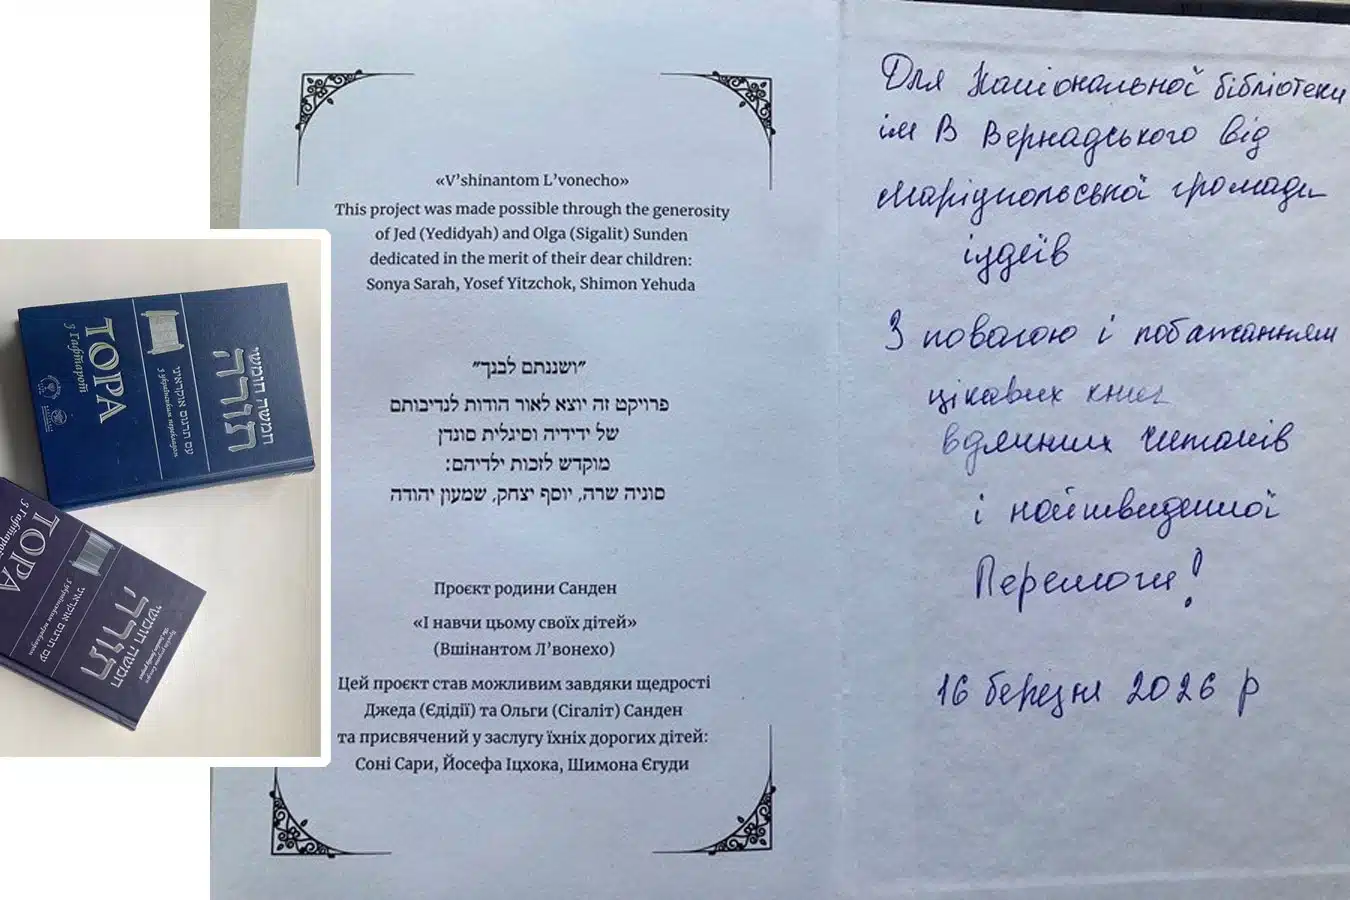 «V'shinantom L'vonecho»
This project was made possible through the generosity
of Jed (Yedidyah) and Olga (Sigalit) Sunden
dedicated in the merit of their dear children:
Sonya Sarah, Yosef Yitzchok, Shimon Yehuda
״ושננתם לבנך״
פרויקט זה יוצא לאור הודות לנדיבותם
של ידידיה וסיגלית סונדן
מוקדש לזכות ילדיהם:
סוניה שרה, יוסף יצחק, שמעון יהודה
Проєкт родини Санден
«І навчи цьому своїх дітей»
(Вшінантом Л'вонехо)
Цей проєкт став можливим завдяки щедрості
Джеда (Єдідії) та Ольги (Сігаліт) Санден
та присвячений у заслугу їхніх дорогих дітей:
Соні Сари, Йосефа Іцхока, Шимона Єгуди
Для Національної бібліотеки
ім В Вернадського від
Маріупольської громади
іудеїв
З повагою і побажанням
цікавих книг
вдячних читачів
і найшвидшої
Перемоги!
16 березня 2026 р
חמישה חומשי
תורה
עם תרגום אוקראיני
З українським перекладом
ТОРА
З Гафтарой
חמישה חומשי
תורה
עם תרגום אוקראיני
З українським перекладом
ТОРА